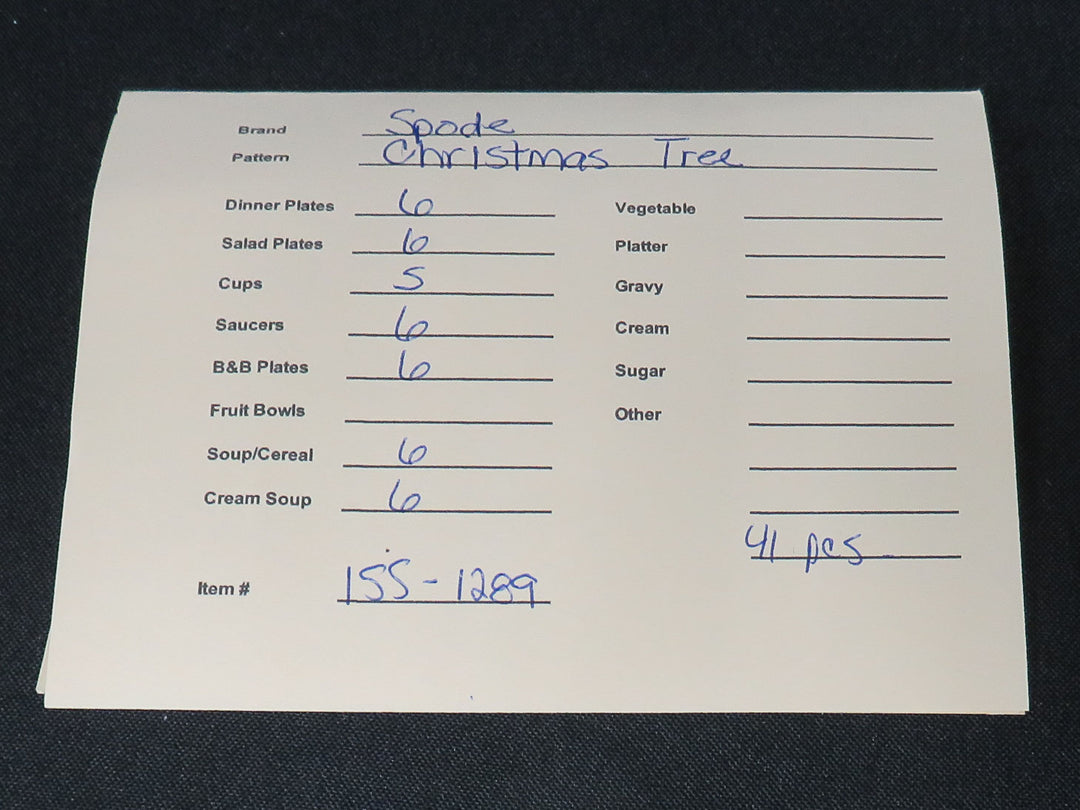 Brand Spode
Pattern Christmas Tree
Dinner Plates 6 Vegetable
Salad Plates 6 Platter
Cups 5 Gravy
Saucers 6 Cream
B&B Plates 6 Sugar
Fruit Bowls Other
Soup/Cereal 6
Cream Soup 6
41 pcs
Item # 155-1289